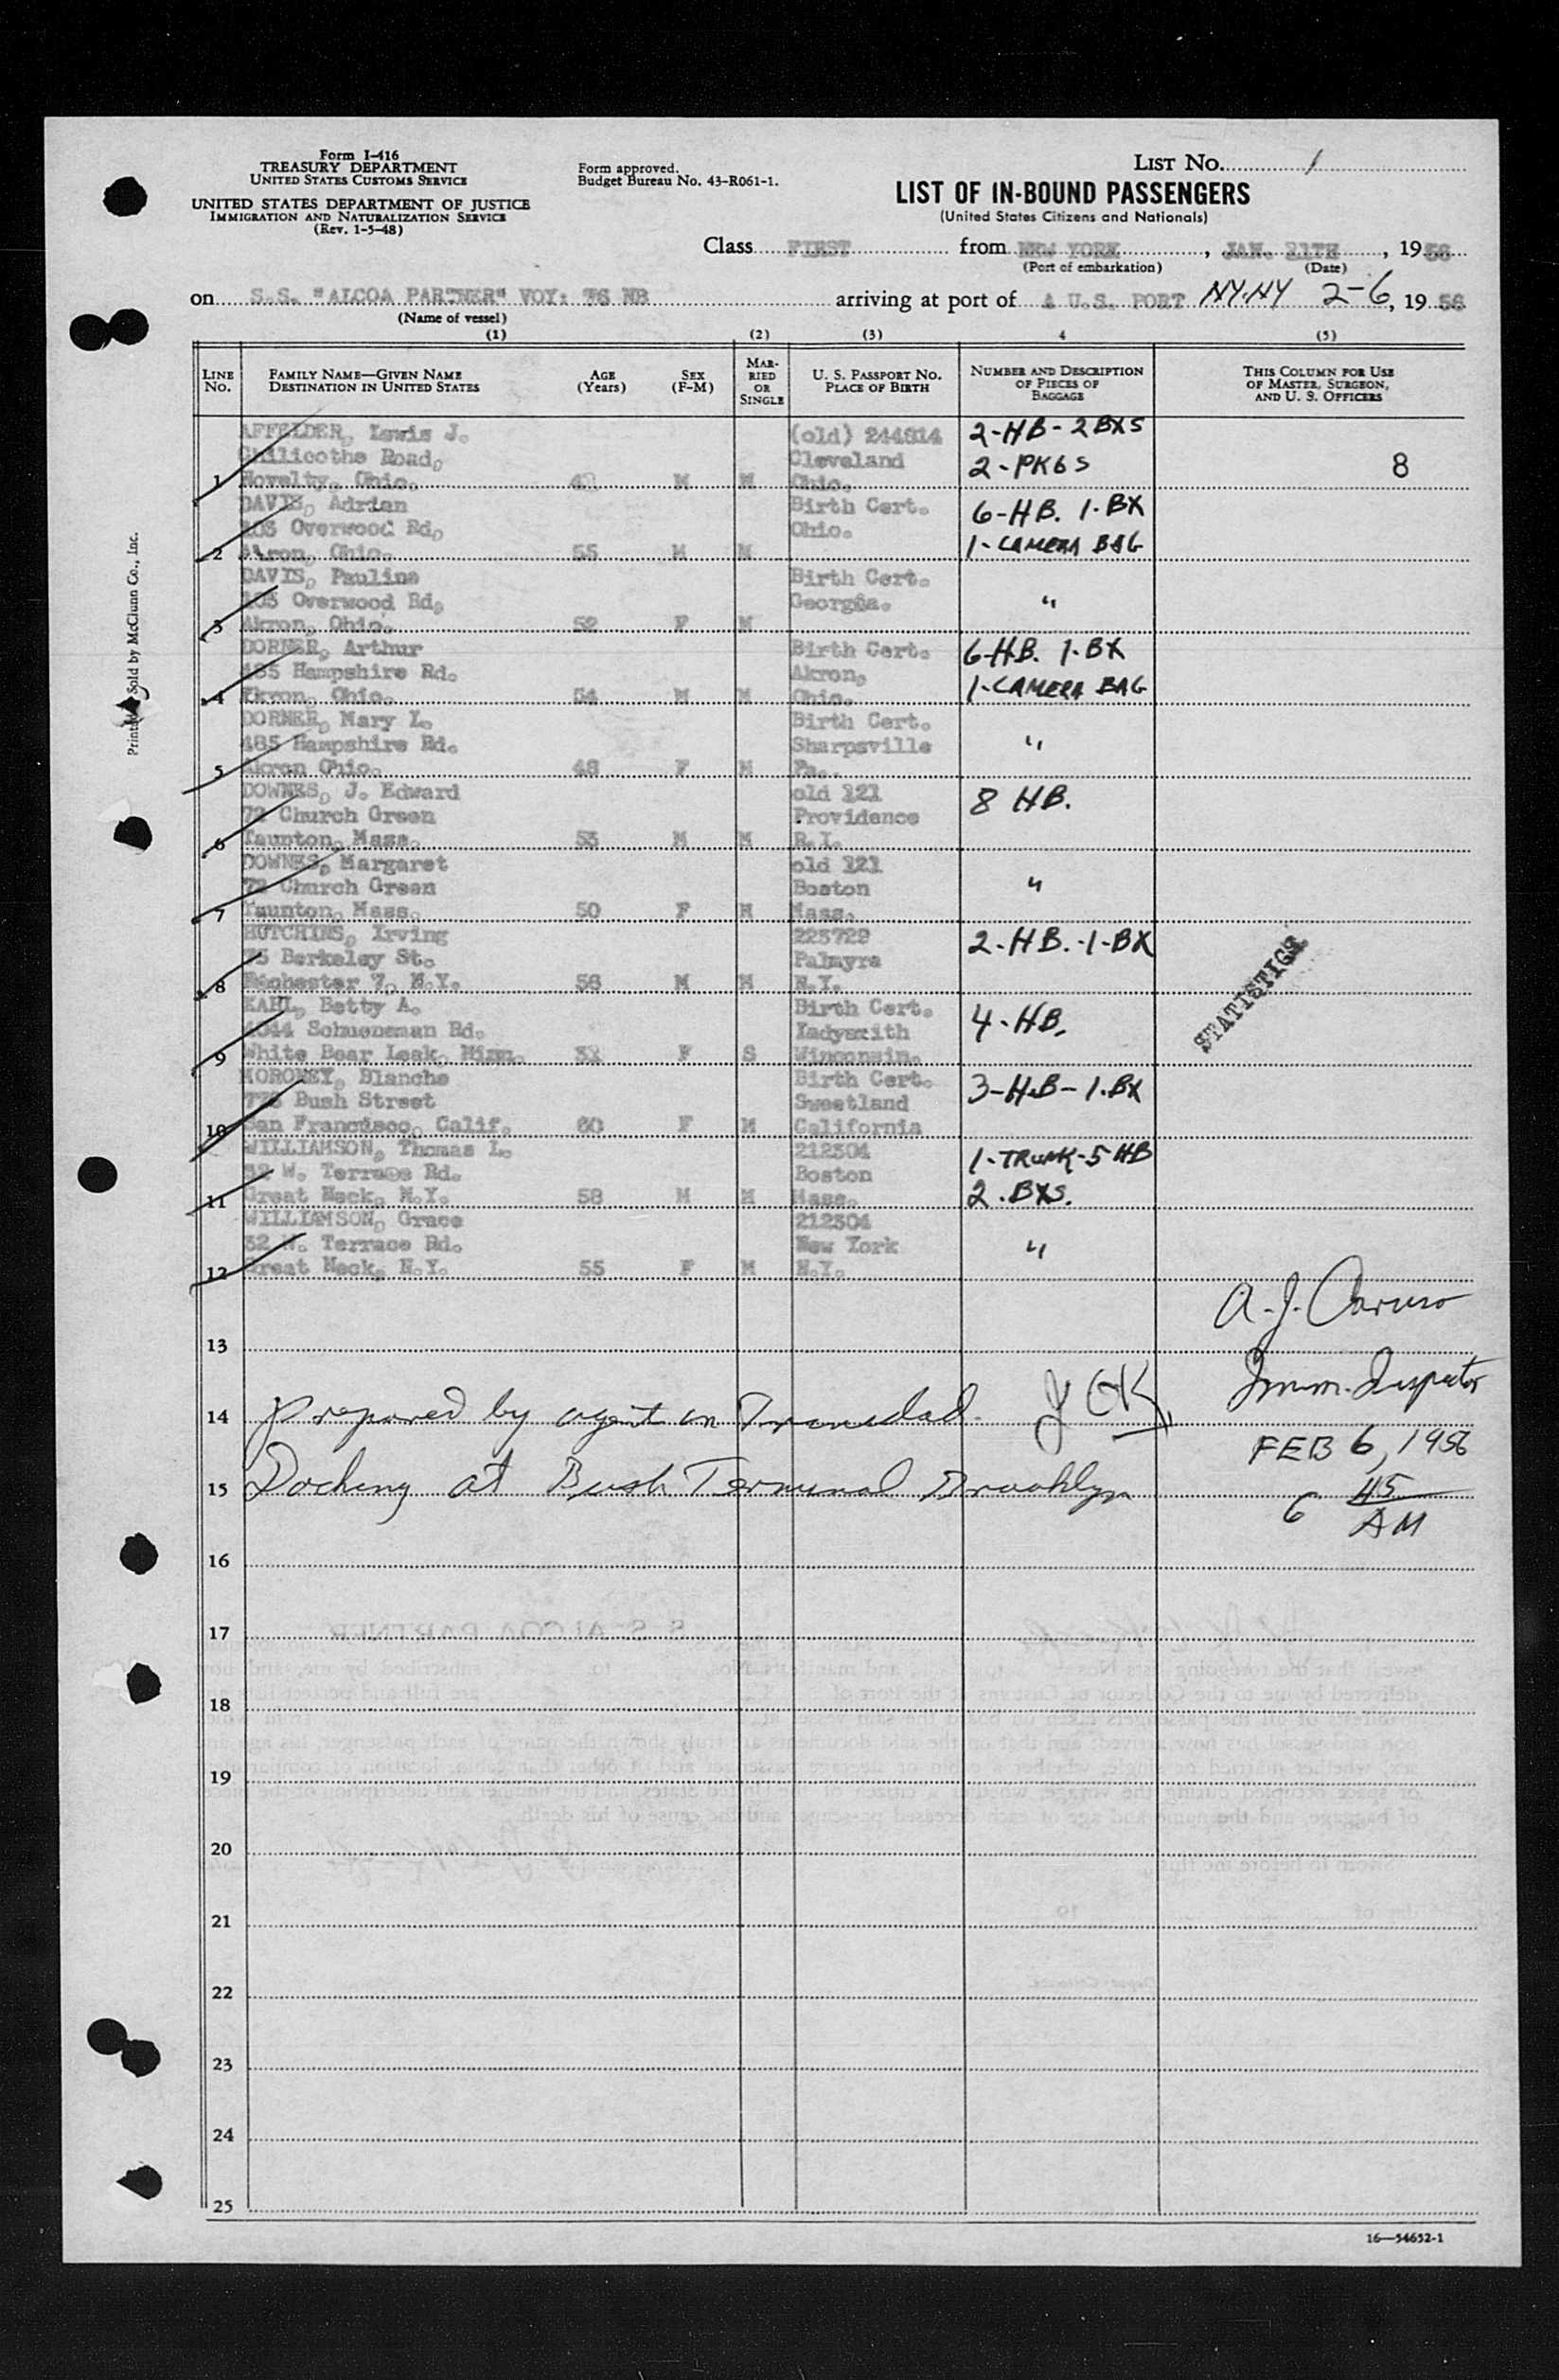 Form I-416
TREASURY DEPARTMENT
UNITED STATES CUSTOMS SERVICE
UNITED STATES DEPARTMENT OF JUSTICE
IMMIGRATION AND NATURALIZATION SERVICE
(Rev. 1-5-48)
Form approved.
Budget Bureau No. 43-R061-1.
LIST NO. 1
LIST OF IN-BOUND PASSENGERS
(United States Citizens and Nationals)
Class FIRST from NEW YORK, JAN. 21TH, 1956
(Port of embarkation) (Date)
on S.S. "ALCOA PARTNER" VOY: 76 NB arriving at port of A U.S. PORT NY.NY 2-6, 1956
(Name of vessel)
(1) (2) (3) 4 (5)
LINE NO.
FAMILY NAME—GIVEN NAME
DESTINATION IN UNITED STATES
AGE (Years)
SEX (F-M)
MARRIED OR SINGLE
U. S. PASSPORT NO.
PLACE OF BIRTH
NUMBER AND DESCRIPTION OF PIECES OF BAGGAGE
THIS COLUMN FOR USE OF MASTER, SURGEON, AND U. S. OFFICERS
AFFELDER, Lewis J. (old) 244814 2-HB-2BXS
Chilicothe Road, Cleveland 2-PKGS 8
1 Novelty, Ohio. M M Ohio.
DAVIS, Adrian Birth Cert. 6-HB. 1-BX
Overwood Rd, Ohio.
2 Akron, Ohio. 55 M M 1-CAMERA BAG
DAVIS, Pauline Birth Cert.
Overwood Rd, Georgia. "
3 Akron, Ohio. 52 F M
DORNER, Arthur Birth Cert. 6-HB. 1-BX
485 Hampshire Rd. Akron,
4 Akron, Ohio. 54 M M Ohio. 1-CAMERA BAG
DORNER, Mary L. Birth Cert.
485 Hampshire Rd. Sharpsville "
5 Akron Ohio. 48 F M Pa.
DOWNES, J. Edward old 121 8 HB.
72 Church Green Providence
6 Taunton, Mass. 53 M M R.I.
DOWNES, Margaret old 121
72 Church Green Boston "
7 Taunton, Mass. 50 F M Mass.
HUTCHINS, Irving 223729 2-HB.-1-BX
75 Berkeley St. Palmyra
8 Rochester 7, N.Y. 56 M M N.Y.
KAHL, Betty A. Birth Cert. 4-HB.
4344 Schuneman Rd. Ladysmith
9 White Bear Leak, Minn. F S Wisconsin.
MORONEY, Blanche Birth Cert. 3-HB-1.BX
Bush Street Sweetland
10 San Francisco, Calif. 60 F M California
WILLIAMSON, Thomas L. 212304 1-TRUNK-5 HB
32 W. Terrace Rd. Boston
11 Great Neck, N.Y. 58 M M Mass. 2.BXS.
WILLIAMSON, Grace 212304
32 W. Terrace Rd. New York "
12 Great Neck, N.Y. 55 F M N.Y.
STATISTICS
A.J. Caruso
13
Imm. Inspector
14 Prepared by agent in Trinidad. JCK
FEB 6, 1956
15 Docking at Bush Terminal Brooklyn
6 45 AM
16
17
18
19
20
21
22
23
24
25
16—54652-1
Printed & Sold by McClunn Co., Inc.